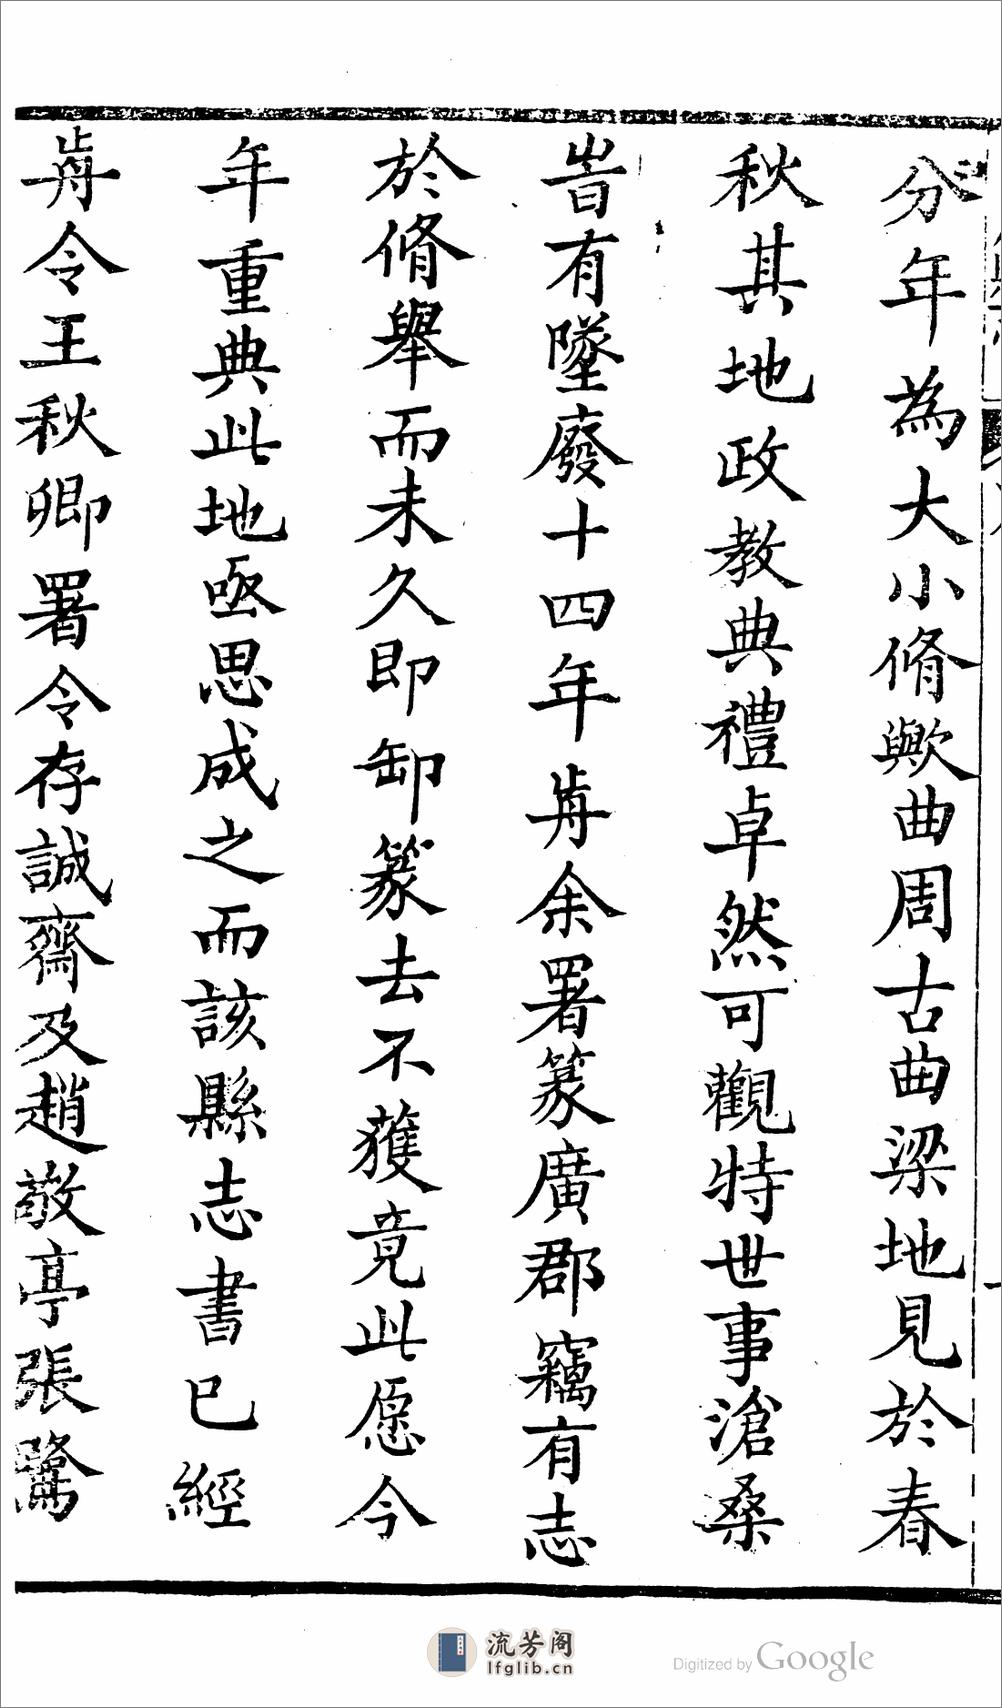 分年為大小脩歟曲周古曲梁地見於春
秋其地政教典禮卓然可觀特世事滄桑
旹有墜廢十四年歬余署篆廣郡竊有志
於脩舉而未久即卸篆去不獲竟此愿今
年重典此地亟思成之而該縣志書已經
歬令王秋卿署令存誠齋及趙敬亭張鷺
流芳阁
lfglib.cn
Digitized by Google